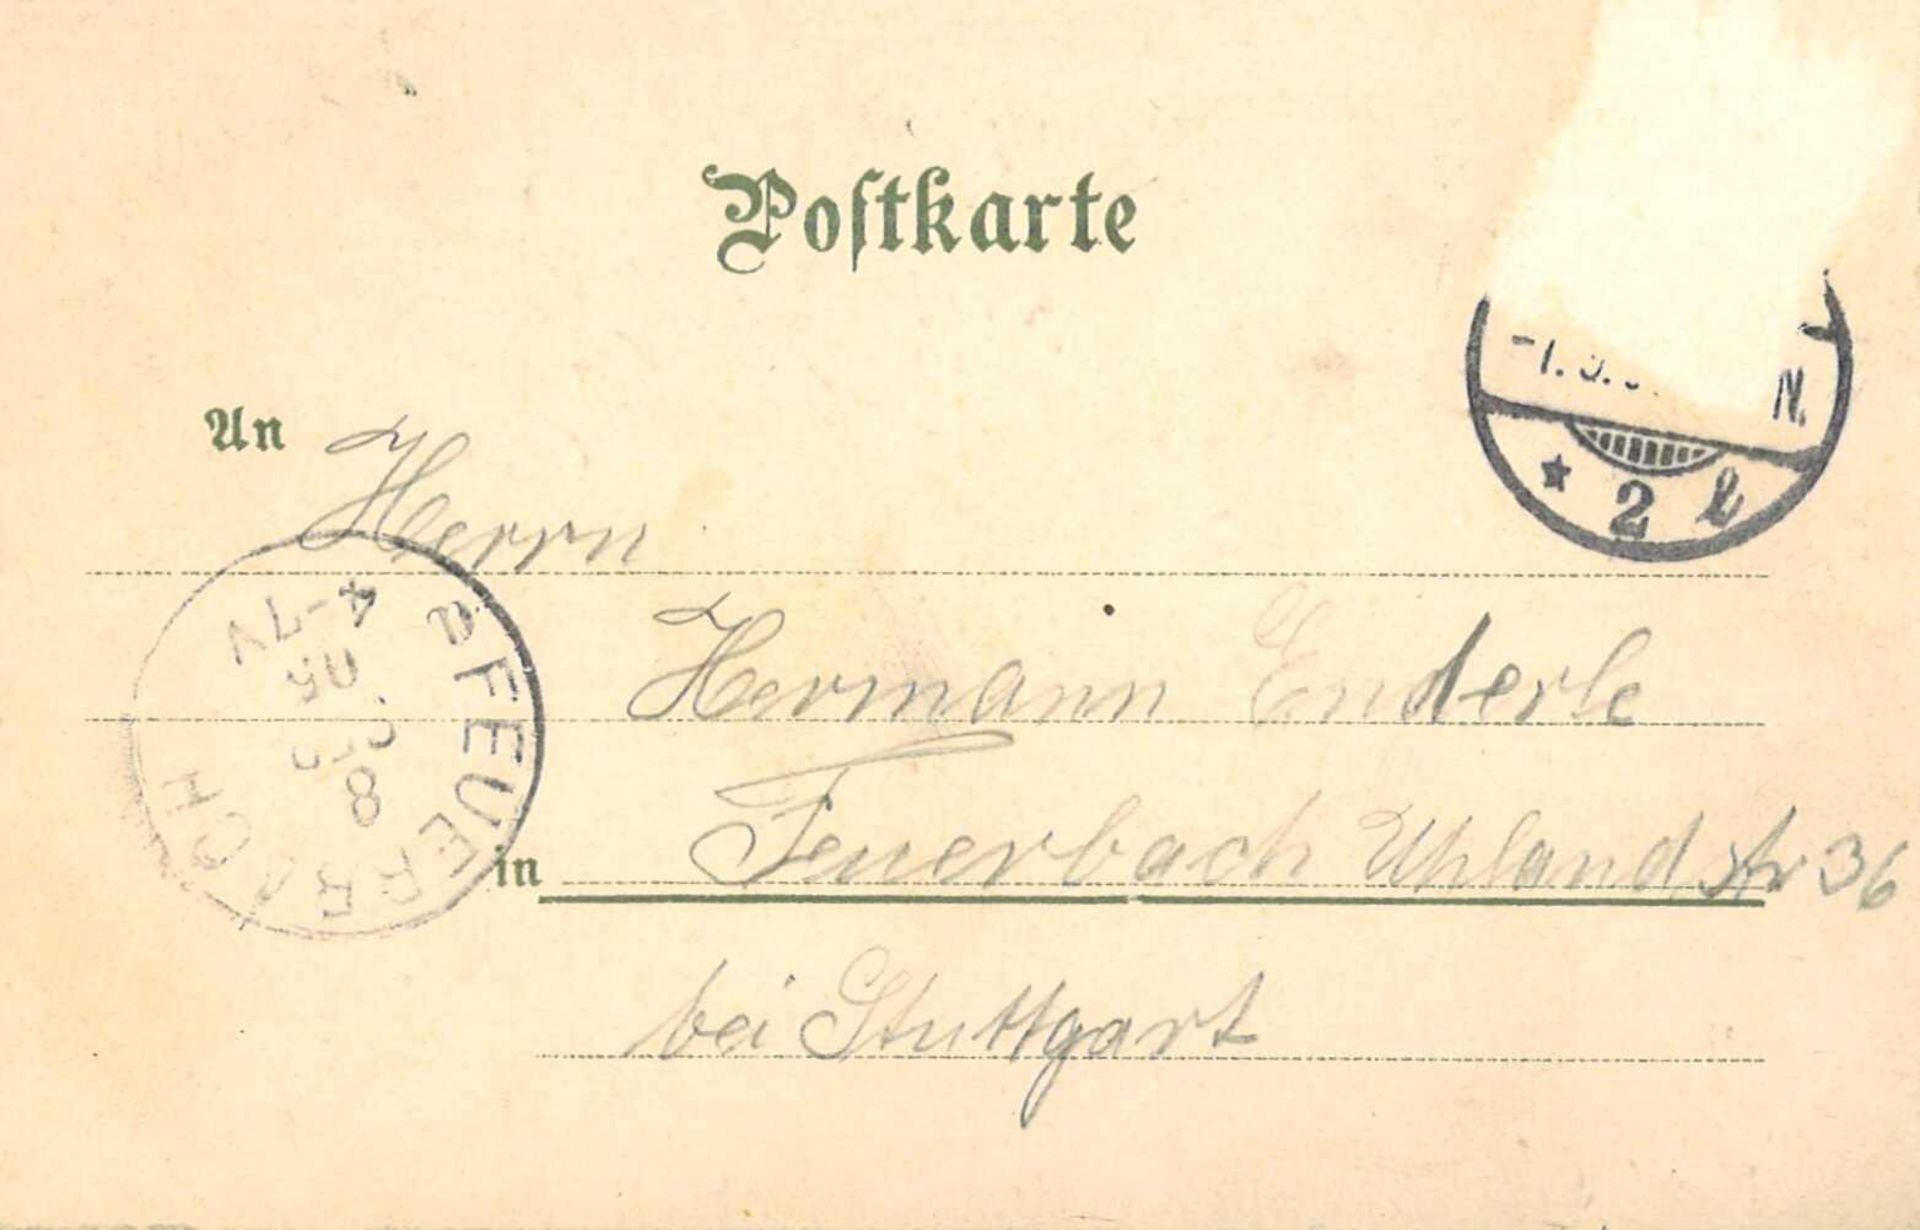 Postkarte
N.
* 2 b
An Herrn
Hermann Enderle
in Feuerbach Uhlandstr 36
bei Stuttgart
FEUERBACH
4-7V